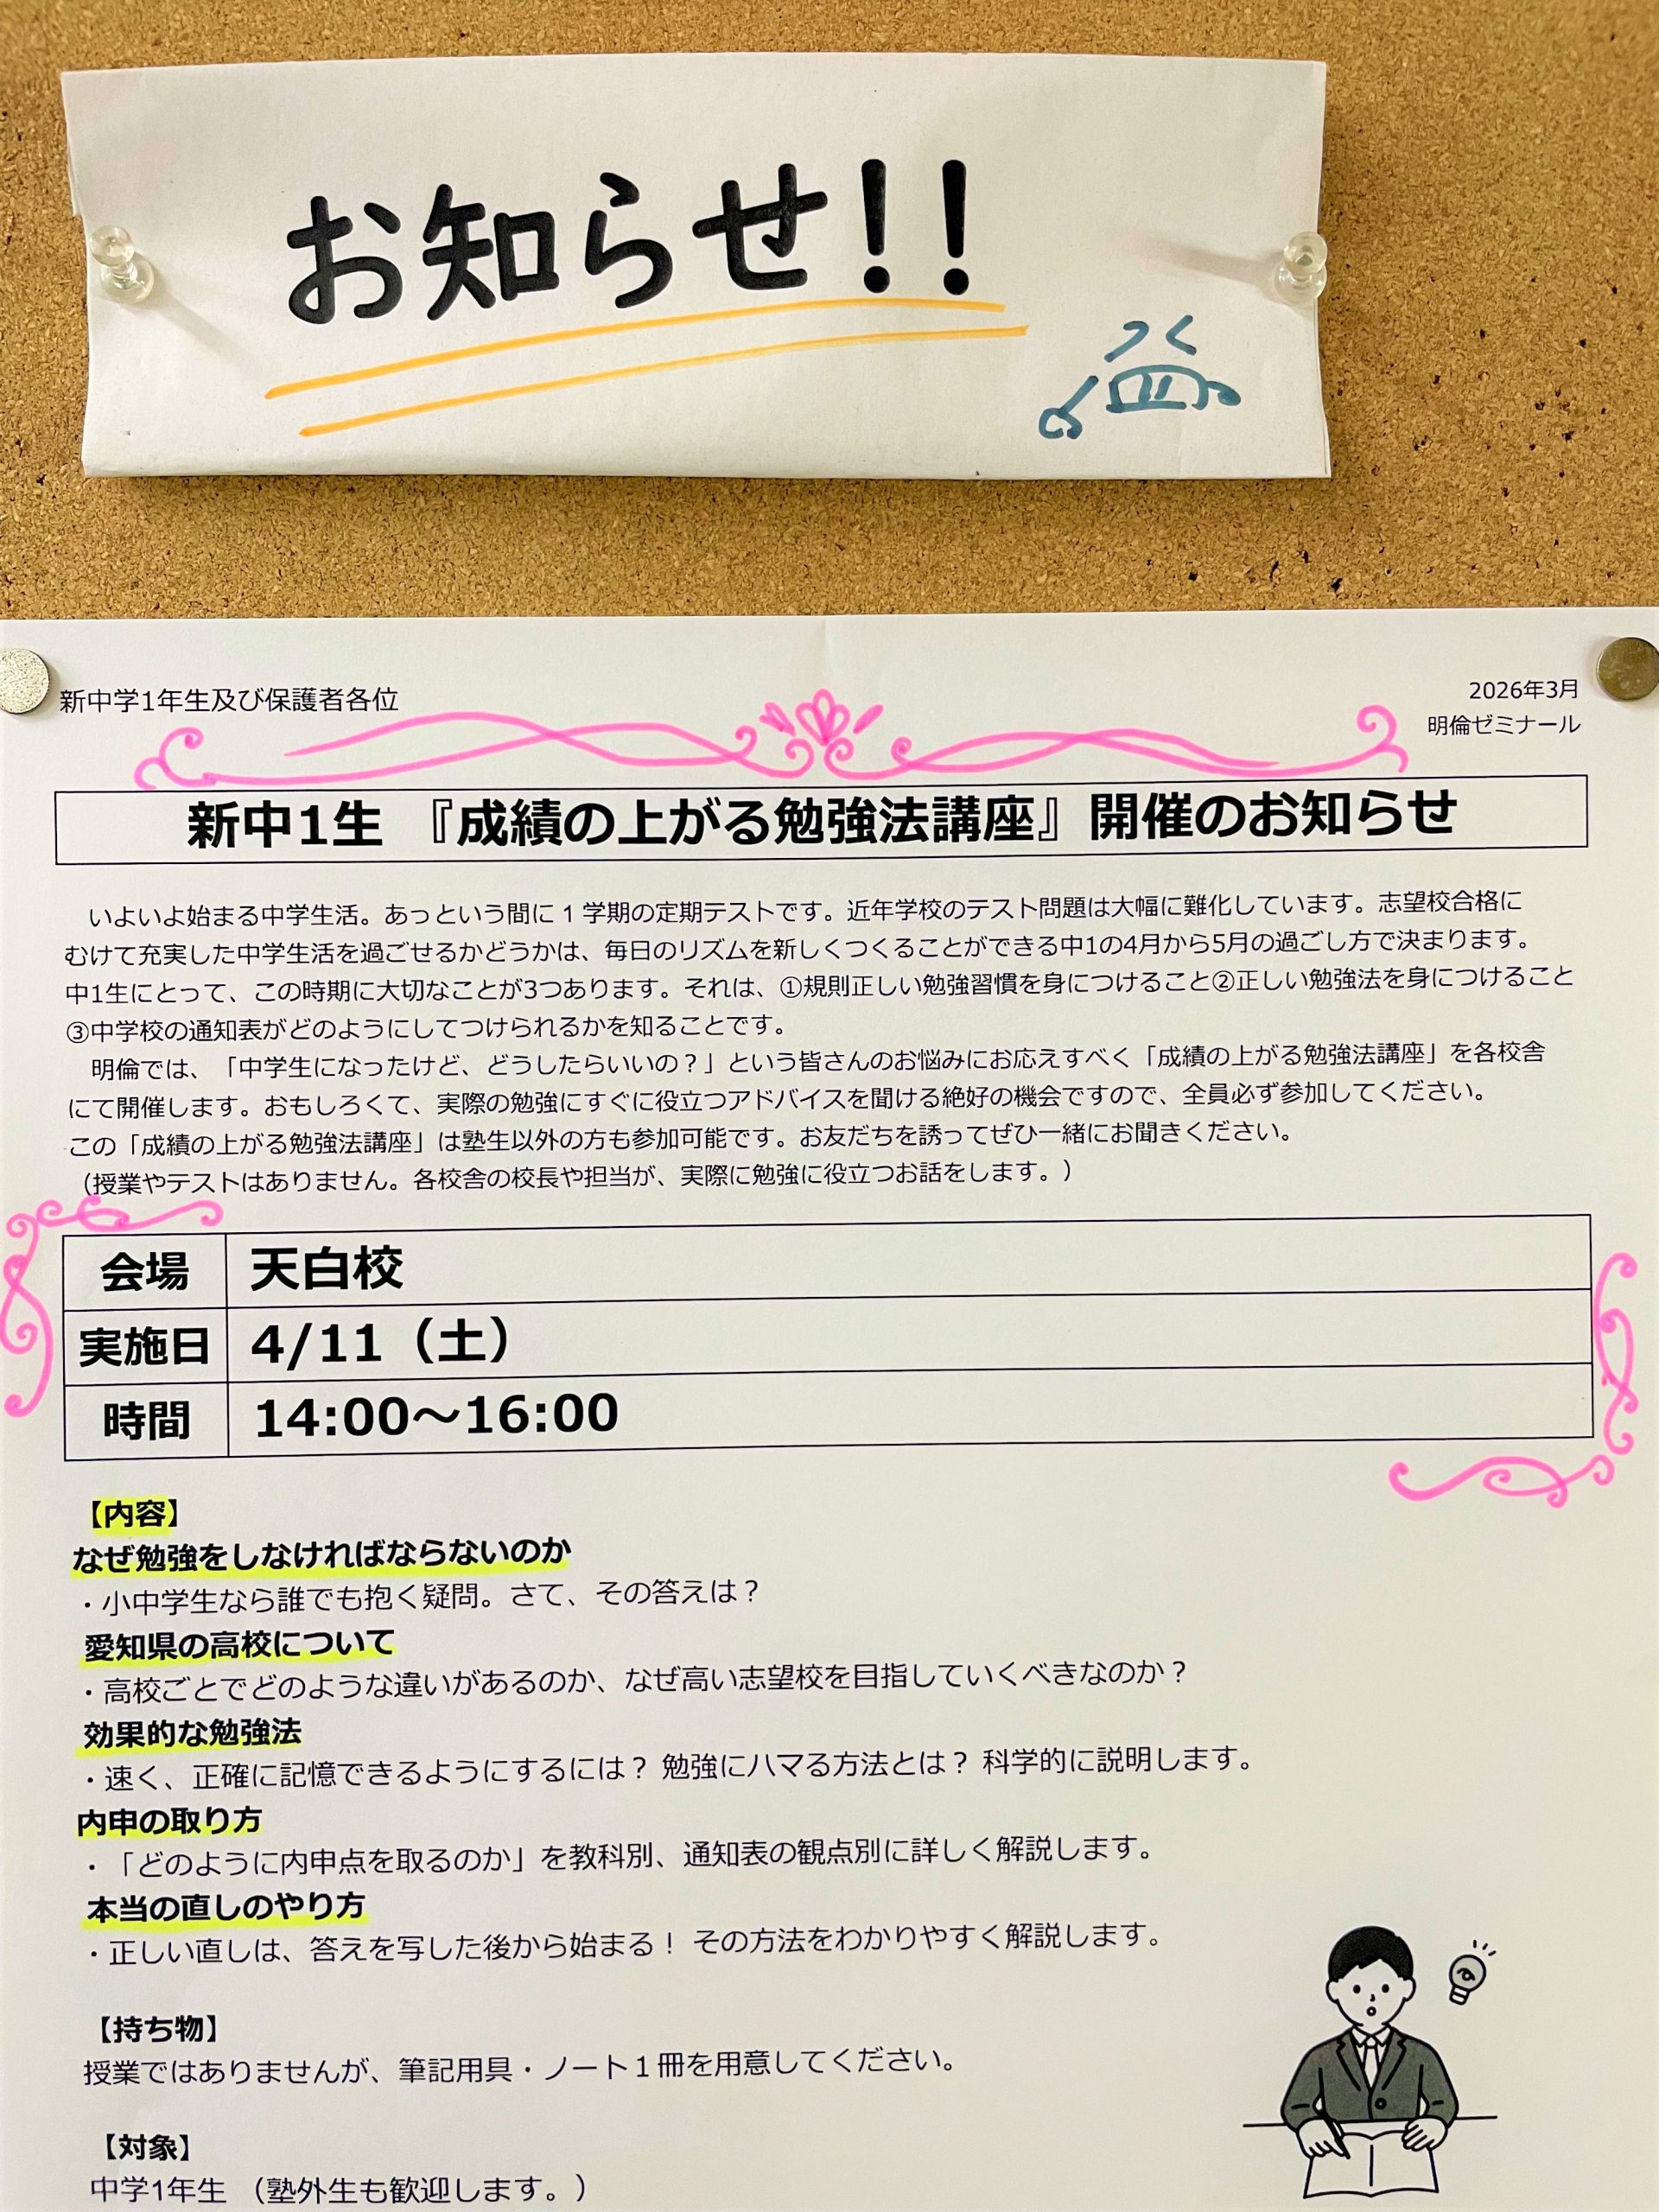 お知らせ!!
新中学1年生及び保護者各位
2026年3月
明倫ゼミナール
新中1生 『成績の上がる勉強法講座』開催のお知らせ
いよいよ始まる中学生活。あっという間に1学期の定期テストです。近年学校のテスト問題は大幅に難化しています。志望校合格に
むけて充実した中学生活を過ごせるかどうかは、毎日のリズムを新しくつくることができる中1の4月から5月の過ごし方で決まります。
中1生にとって、この時期に大切なことが3つあります。それは、①規則正しい勉強習慣を身につけること②正しい勉強法を身につけること
③中学校の通知表がどのようにしてつけられるかを知ることです。
明倫では、「中学生になったけど、どうしたらいいの？」という皆さんのお悩みにお応えすべく「成績の上がる勉強法講座」を各校舎
にて開催します。おもしろくて、実際の勉強にすぐに役立つアドバイスを聞ける絶好の機会ですので、全員必ず参加してください。
この「成績の上がる勉強法講座」は塾生以外の方も参加可能です。お友だちを誘ってぜひ一緒にお聞きください。
（授業やテストはありません。各校舎の校長や担当が、実際に勉強に役立つお話をします。）
会場 天白校
実施日 4/11（土）
時間 14:00～16:00
【内容】
なぜ勉強をしなければならないのか
・小中学生なら誰でも抱く疑問。さて、その答えは？
愛知県の高校について
・高校ごとでどのような違いがあるのか、なぜ高い志望校を目指していくべきなのか？
効果的な勉強法
・速く、正確に記憶できるようにするには？ 勉強にハマる方法とは？ 科学的に説明します。
内申の取り方
・「どのように内申点を取るのか」を教科別、通知表の観点別に詳しく解説します。
本当の直しのやり方
・正しい直しは、答えを写した後から始まる！ その方法をわかりやすく解説します。
【持ち物】
授業ではありませんが、筆記用具・ノート１冊を用意してください。
【対象】
中学1年生 （塾外生も歓迎します。）